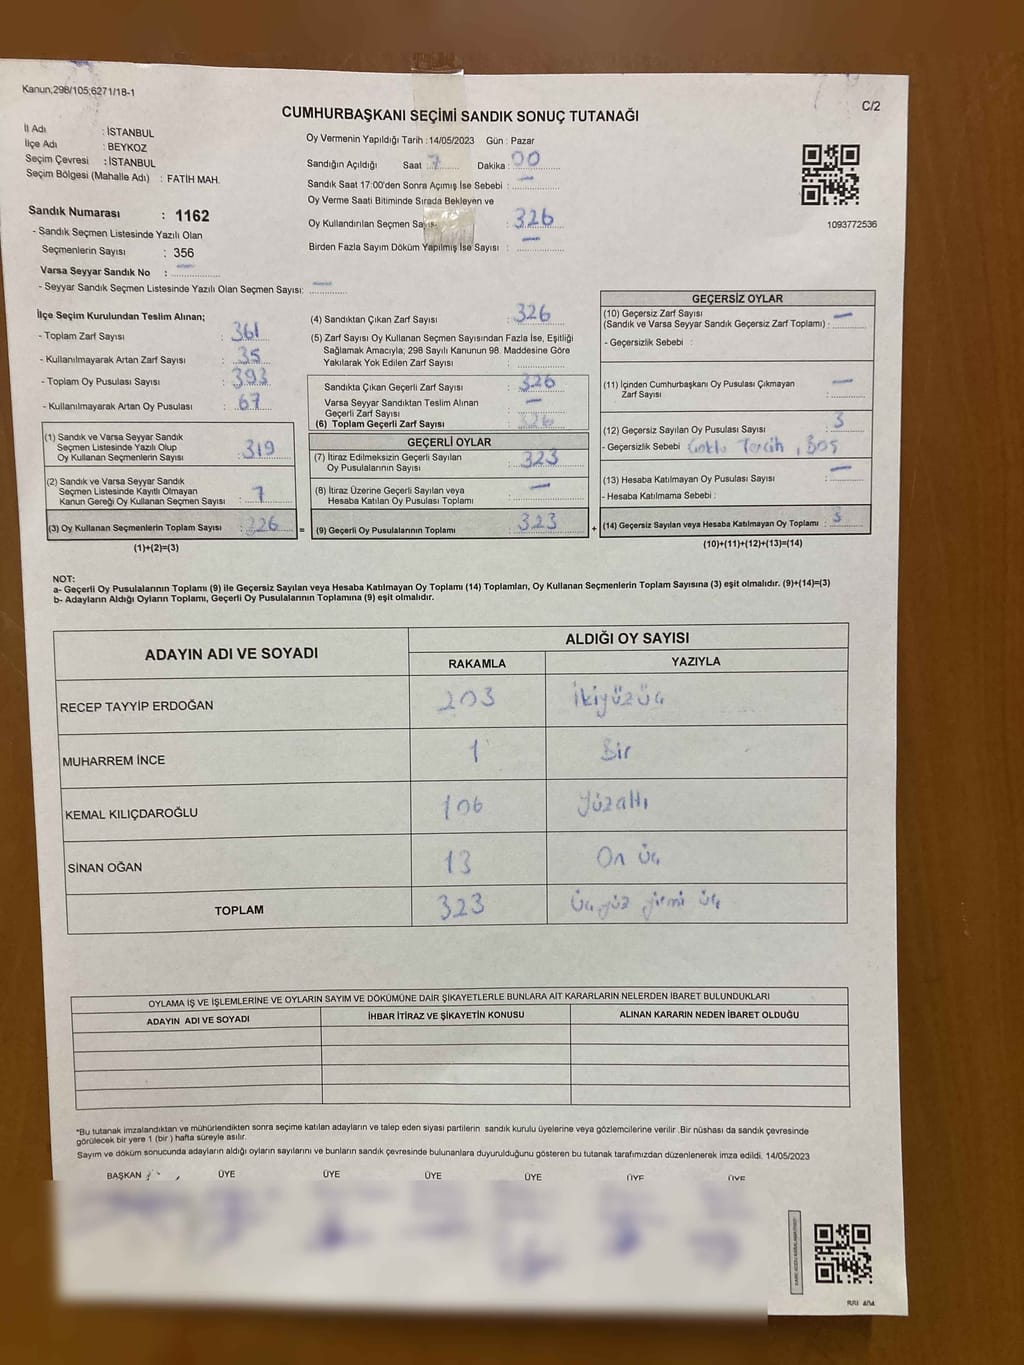 Kanun,298/105,6271/18-1
C/2
CUMHURBAŞKANI SEÇİMİ SANDIK SONUÇ TUTANAĞI
İl Adı : İSTANBUL
İlçe Adı : BEYKOZ
Seçim Çevresi : İSTANBUL
Seçim Bölgesi (Mahalle Adı) : FATİH MAH.
Oy Vermenin Yapıldığı Tarih :14/05/2023 Gün : Pazar
Sandığın Açıldığı Saat : 7 Dakika : 00
Sandık Saat 17:00'den Sonra Açımış İse Sebebi : —
Oy Verme Saati Bitiminde Sırada Bekleyen ve
Oy Kullandırılan Seçmen Sayısı : 326
Birden Fazla Sayım Döküm Yapılmış İse Sayısı : —
1093772536
Sandık Numarası : 1162
- Sandık Seçmen Listesinde Yazılı Olan
Seçmenlerin Sayısı : 356
Varsa Seyyar Sandık No : —
- Seyyar Sandık Seçmen Listesinde Yazılı Olan Seçmen Sayısı: —
İlçe Seçim Kurulundan Teslim Alınan;
- Toplam Zarf Sayısı : 361
- Kullanılmayarak Artan Zarf Sayısı : 35
- Toplam Oy Pusulası Sayısı : 393
- Kullanılmayarak Artan Oy Pusulası : 67
(1) Sandık ve Varsa Seyyar Sandık
Seçmen Listesinde Yazılı Olup
Oy Kullanan Seçmenlerin Sayısı : 319
(2) Sandık ve Varsa Seyyar Sandık
Seçmen Listesinde Kayıtlı Olmayan
Kanun Gereği Oy Kullanan Seçmen Sayısı : 7
(3) Oy Kullanan Seçmenlerin Toplam Sayısı : 326 =
(1)+(2)=(3)
(4) Sandıktan Çıkan Zarf Sayısı : 326
(5) Zarf Sayısı Oy Kullanan Seçmen Sayısından Fazla İse, Eşitliği
Sağlamak Amacıyla; 298 Sayılı Kanunun 98. Maddesine Göre
Yakılarak Yok Edilen Zarf Sayısı :
Sandıkta Çıkan Geçerli Zarf Sayısı : 326
Varsa Seyyar Sandıktan Teslim Alınan
Geçerli Zarf Sayısı : —
(6) Toplam Geçerli Zarf Sayısı : 326
GEÇERLİ OYLAR
(7) İtiraz Edilmeksizin Geçerli Sayılan
Oy Pusulalarının Sayısı : 323
(8) İtiraz Üzerine Geçerli Sayılan veya
Hesaba Katılan Oy Pusulası Toplamı : —
(9) Geçerli Oy Pusulalarının Toplamı : 323 +
GEÇERSİZ OYLAR
(10) Geçersiz Zarf Sayısı
(Sandık ve Varsa Seyyar Sandık Geçersiz Zarf Toplamı) : —
- Geçersizlik Sebebi :
(11) İçinden Cumhurbaşkanı Oy Pusulası Çıkmayan
Zarf Sayısı : —
(12) Geçersiz Sayılan Oy Pusulası Sayısı : 3
- Geçersizlik Sebebi Çoklu Tercih , Boş
(13) Hesaba Katılmayan Oy Pusulası Sayısı : —
- Hesaba Katılmama Sebebi :
(14) Geçersiz Sayılan veya Hesaba Katılmayan Oy Toplamı : 3
(10)+(11)+(12)+(13)=(14)
NOT:
a- Geçerli Oy Pusulalarının Toplamı (9) ile Geçersiz Sayılan veya Hesaba Katılmayan Oy Toplamı (14) Toplamları, Oy Kullanan Seçmenlerin Toplam Sayısına (3) eşit olmalıdır. (9)+(14)=(3)
b- Adayların Aldığı Oyların Toplamı, Geçerli Oy Pusulalarının Toplamına (9) eşit olmalıdır.
ADAYIN ADI VE SOYADI ALDIĞI OY SAYISI
RAKAMLA YAZIYLA
RECEP TAYYİP ERDOĞAN 203 İkiyüzüç
MUHARREM İNCE 1 Bir
KEMAL KILIÇDAROĞLU 106 Yüzaltı
SİNAN OĞAN 13 On üç
TOPLAM 323 Üç yüz yirmi üç
OYLAMA İŞ VE İŞLEMLERİNE VE OYLARIN SAYIM VE DÖKÜMÜNE DAİR ŞİKAYETLERLE BUNLARA AİT KARARLARIN NELERDEN İBARET BULUNDUKLARI
ADAYIN ADI VE SOYADI İHBAR İTİRAZ VE ŞİKAYETİN KONUSU ALINAN KARARIN NEDEN İBARET OLDUĞU
*Bu tutanak imzalandıktan ve mühürlendikten sonra seçime katılan adayların ve talep eden siyasi partilerin sandık kurulu üyelerine veya gözlemcilerine verilir .Bir nüshası da sandık çevresinde
görülecek bir yere 1 (bir ) hafta süreyle asılır.
Sayım ve döküm sonucunda adayların aldığı oyların sayılarını ve bunların sandık çevresinde bulunanlara duyurulduğunu gösteren bu tutanak tarafımızdan düzenlenerek imza edildi. 14/05/2023
BAŞKAN ÜYE ÜYE ÜYE ÜYE ÜYE ÜYE